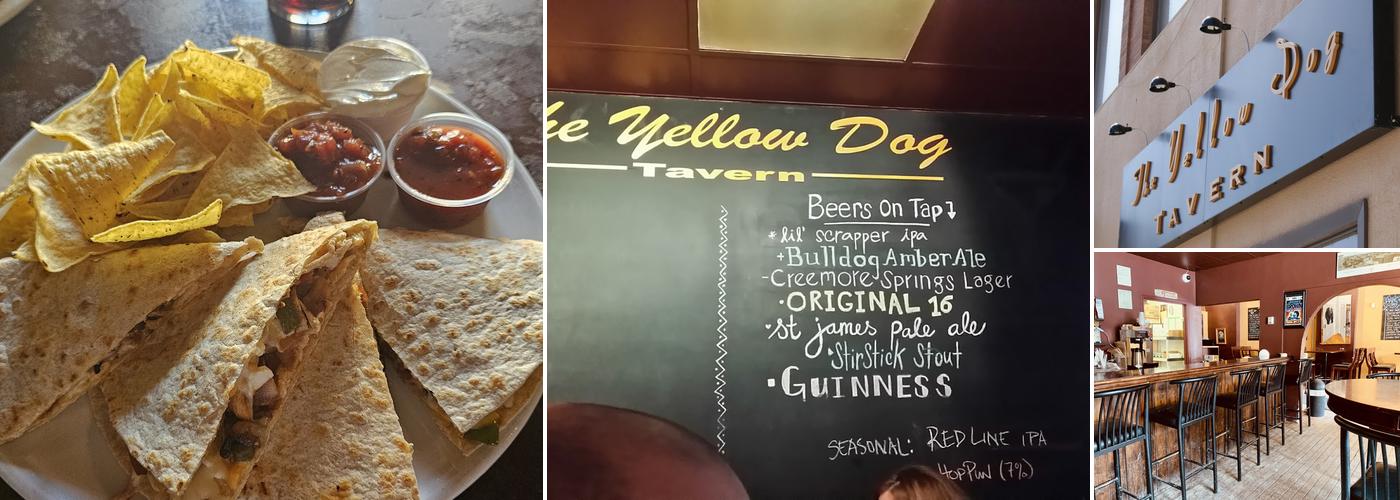 he Yellow Dog
Tavern
Beers On Tap
* lil' scrapper ipa
+ Bulldog Amber Ale
- Creemore Springs Lager
· ORIGINAL 16
· st james pale ale
· StirStick Stout
· GUINNESS
SEASONAL: RED LINE IPA
HopPun (7%)
The Yellow Dog
TAVERN